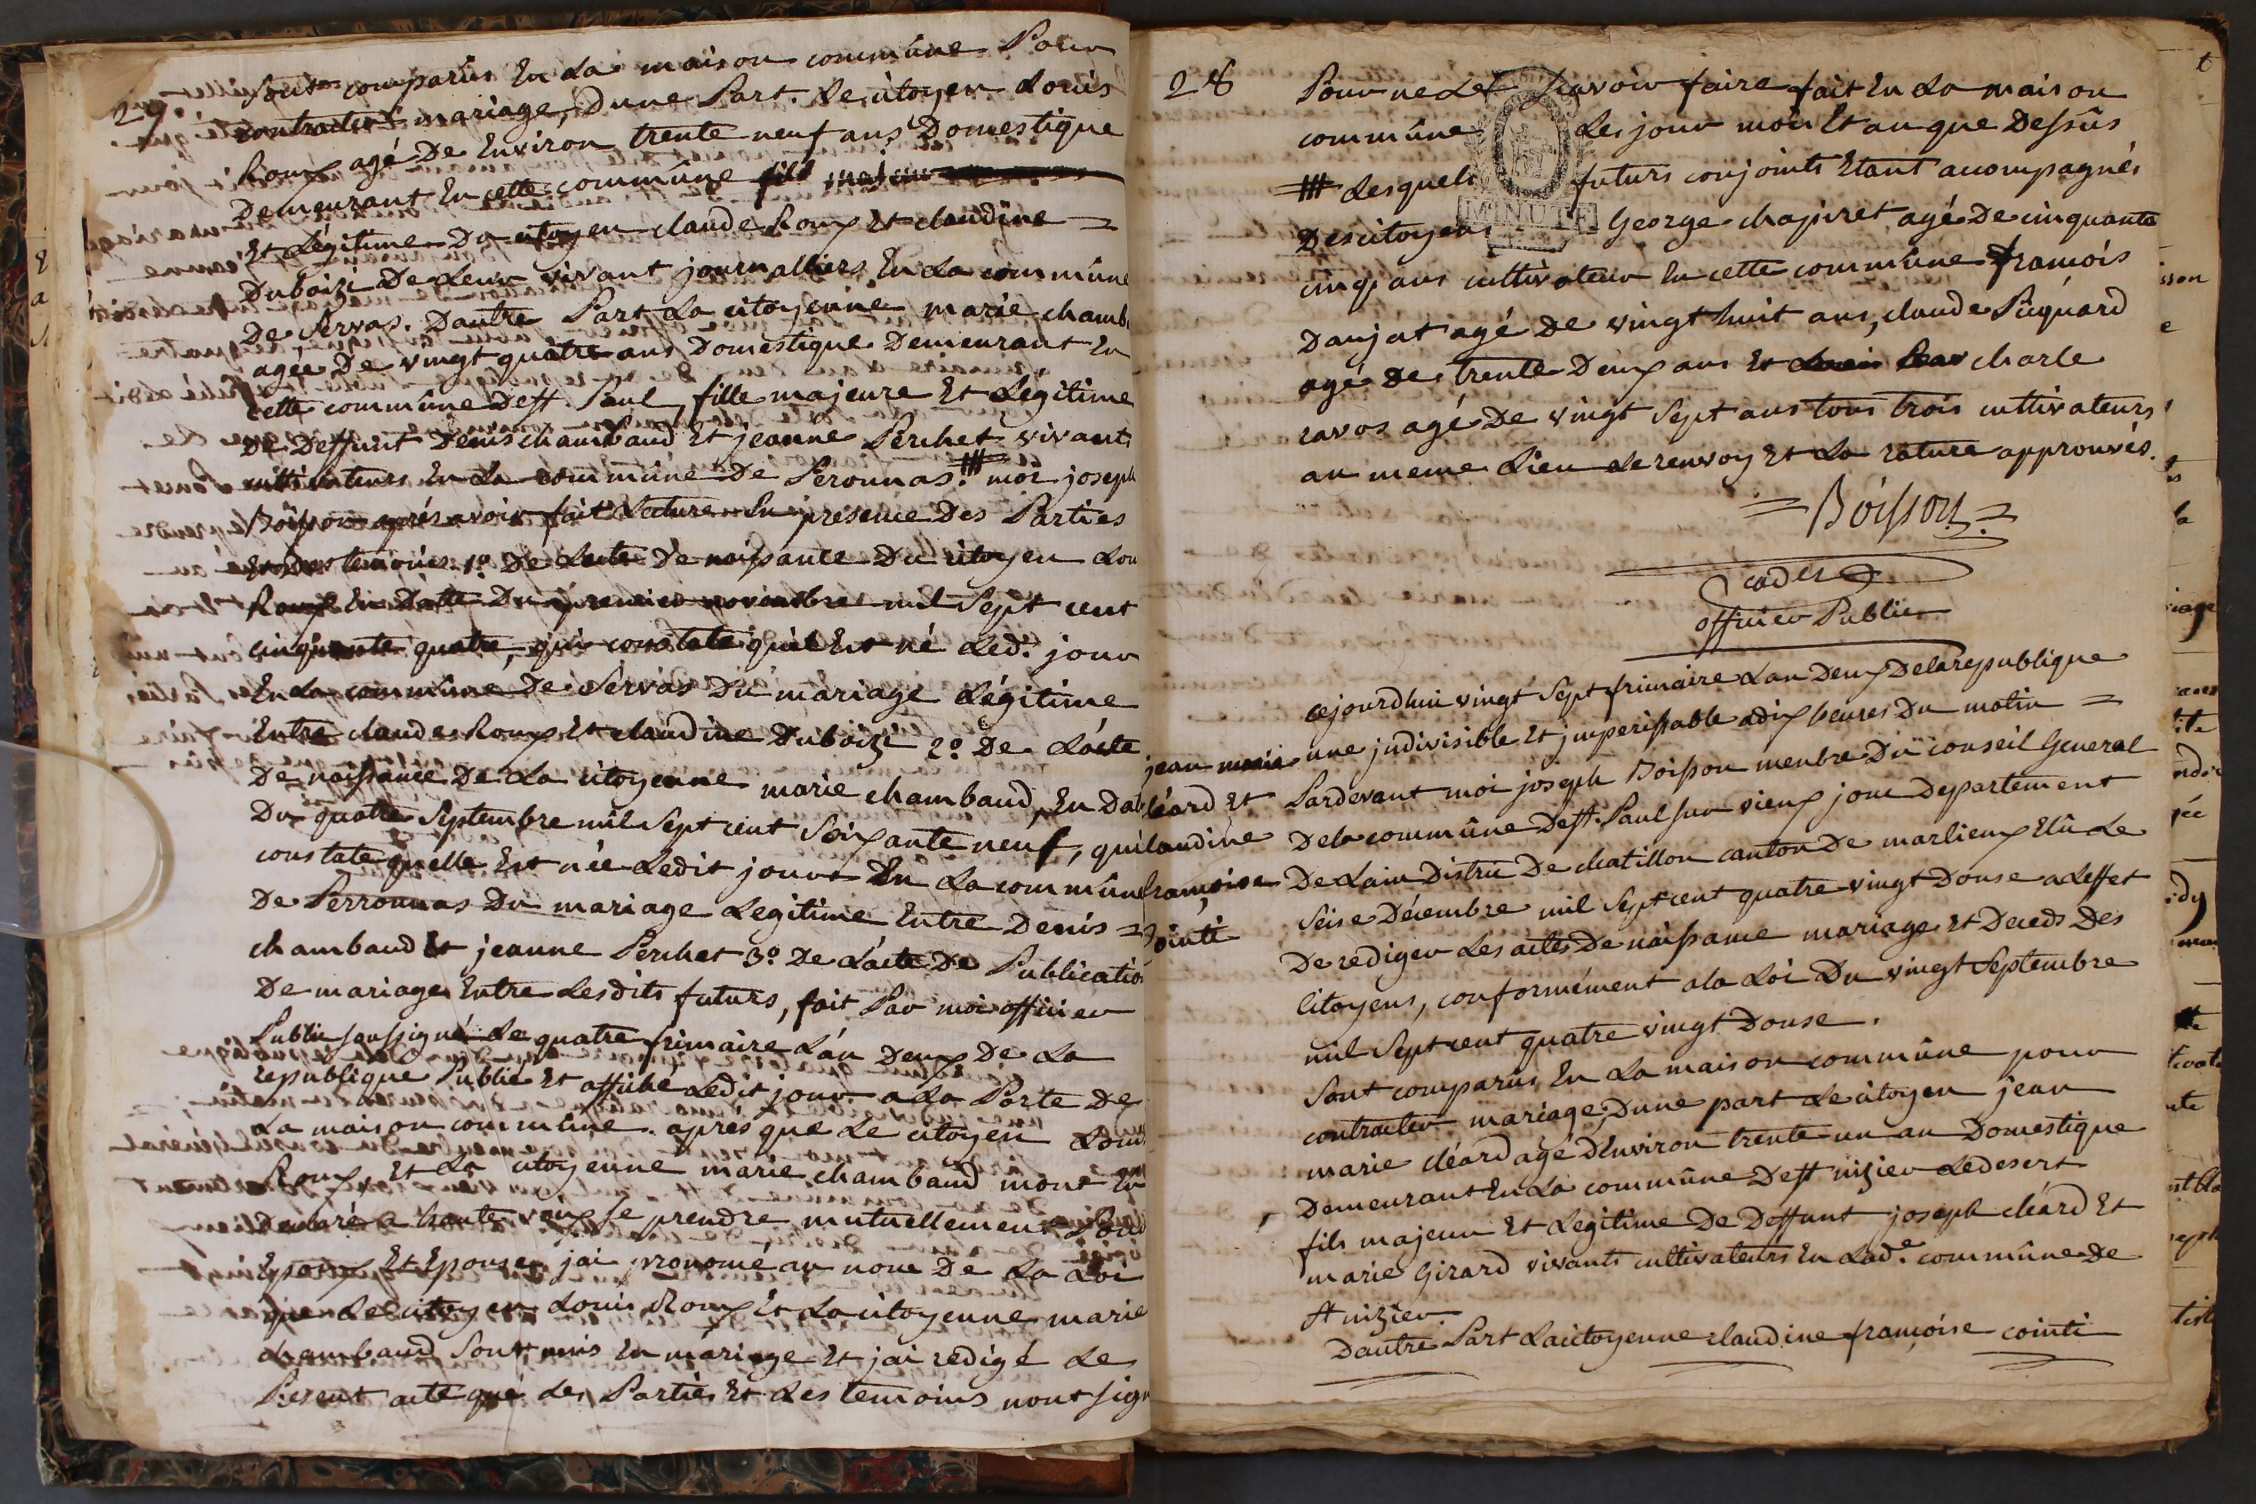 27.
sont comparus En La maison commûne Pour
contracter mariage, Dune Part. Le citoyen Louis
Roux agé De Environ trente neuf ans Domestique
Demeurant En cette commûne fils majeur
Et Légitime Du citoyen claude Roux Et claudine =
Duboizi De Leur vivant journalliers En La commûne
De Servas. Dautre Part La citoyenne marie chamb
agée De vingt quatre ans Domestique Demeurant En
cette commûne De st. Paul, fille majeure Et Légitime
De Deffunt Denis chambaud Et jeanne Perchet vivants
cultivateurs En La commûne De Peronnas. # moi joseph
Boisson aprés avoir fait Lecture En presence Des Parties
Et Des temoins 1º De Lacte De naissance Du citoyen Lou
Roux En Datte Du premier novembre mil Sept cent
cinquante quatre, qui constate quil Est né Led.t jour
En La commûne De Servas Du mariage Légitime
Entre claude Roux Et claudine Duboizi 2º De Lácte
De naissance De La citoyenne marie chambaud, En Dat
Du quatre Septembre mil Sept cent Soixante neuf, qui
constate quelle Est née Ledit jour En La commûne
De Perronnas Du mariage Legitime Entre Denis =
chambaud Et jeanne Perchet 3º De Lacte De Publicatio
De mariage Entre Lesdits futurs, fait Par moi officier
Public soussigné Le quatre frimaire Lán Deux De La
republique Publié Et affiché Ledit jour a La Porte De
La maison commûne. après que Le citoyen Loui
Roux, Et La citoyenne marie chambaud mont En
Declaré a haute voix se prendre mutuellement Pour
Epoux Et Epouse, jai prononcé au nom De La Loi
que Le citoyen Louis Roux Et La citoyenne marie
chambaud Sont unis En mariage Et jai redigé Le
Present acte que Les Parties Et Les temoins nont sign
28
Pour ne Le sçavoir faire fait En La maison
commûne Les jour mois Et an que Dessûs
# Lesquels futurs conjoints Etant accompagnés
Des citoyens George chapuret agé De cinquante
cinq ans cultivateur En cette commûne françois
Danjat agé De vingt huit ans, claude Picquard
agé De trente Deux ans Et charle
ravos agé De vingt Sept ans tous trois cultivateurs
au meme Lieu Le renvoy Et La rature approuvés.
= Boisson =
officier Public
MINUTE
jean marie
cléard Et
claudine
françoise
cointi
cejourdhui vingt Sept frimaire Lan Deux De la republique
une jndivisible Et jmperissable adix heures Du matin =
Pardevant moi joseph Boisson menbre Du conseil General
De la commûne De st. Paul sur vieux jonc Departement
De Lain District De chatillon canton De marlieux Elû Le
Seise Décembre mil Sept cent quatre vingt Douse a Leffet
De rediger Les actes De naissance mariage Et Deceds Des
Citoyens, conformément a la Loi Du vingt Septembre
mil Sept cent quatre vingt Douse.
Sont comparus En La maison commûne pour
contracter mariage, Dune part Le citoyen jean
marie cléard agé DEnviron trente un an Domestique
Demeurant En La commûne De st nizier Le desert
fils majeur Et Legitime De Deffunt joseph cléard Et
marie Girard vivants cultivateurs En Lad.e commûne De
st nizier.
Dautre Part La citoyenne claudine françoise cointi